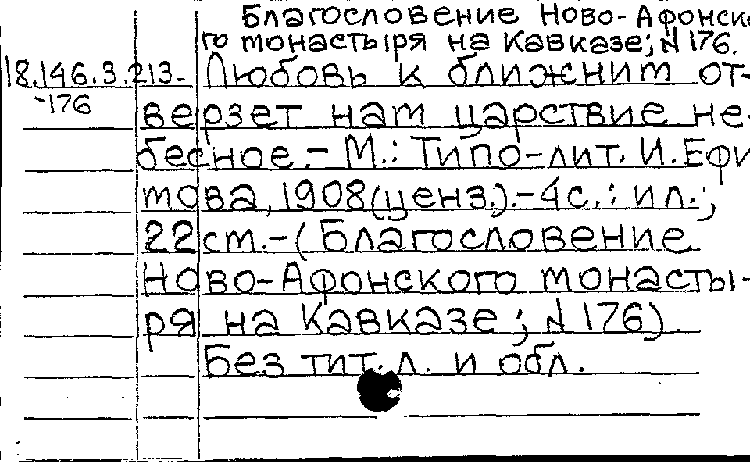 Благословение Ново-Афонско
го монастыря на Кавказе; № 176.
18.146.3.213- Любовь к ближним от-
-176
верзет нам царствие не-
бесное.- М.: Типо-лит. И. Ефи
мова, 1908(ценз.).- 4с.: ил.;
22см.-(Благословение
Ново-Афонского монасты-
ря на Кавказе; № 176).
Без тит. л. и обл.